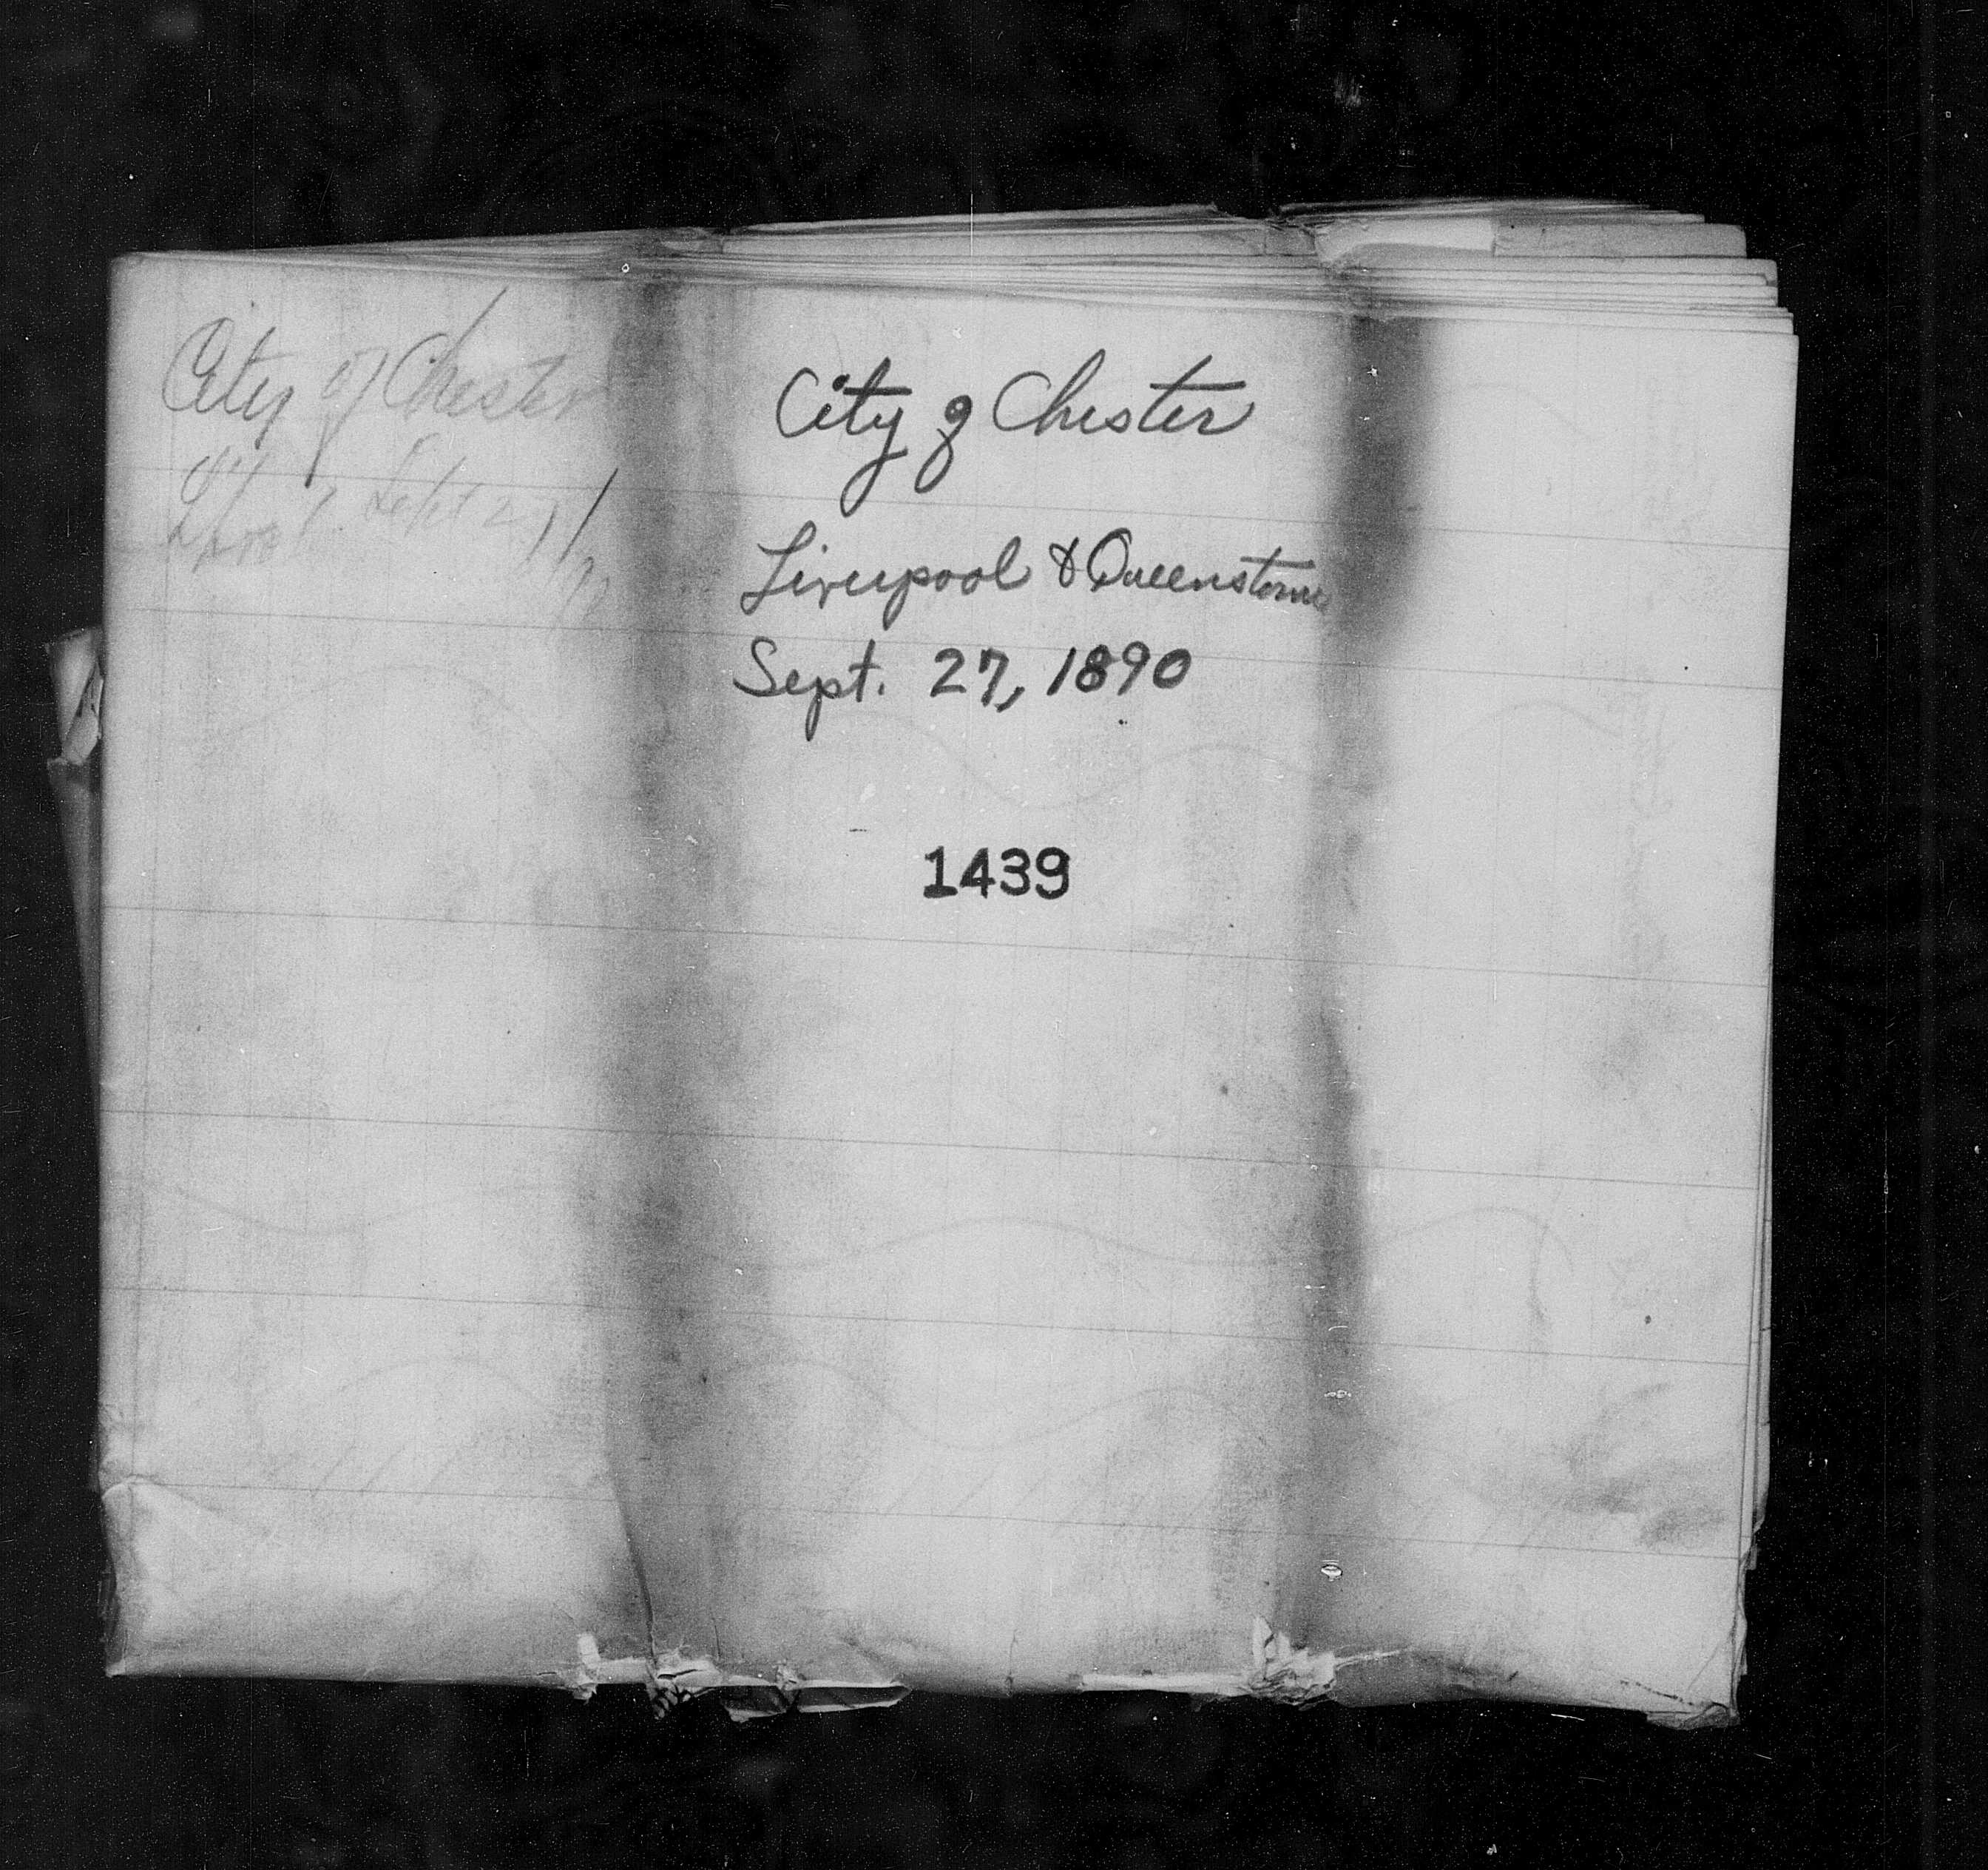 City of Chester
Sept 27/90
City of Chester
Liverpool & Queenstown
Sept. 27, 1890
1439